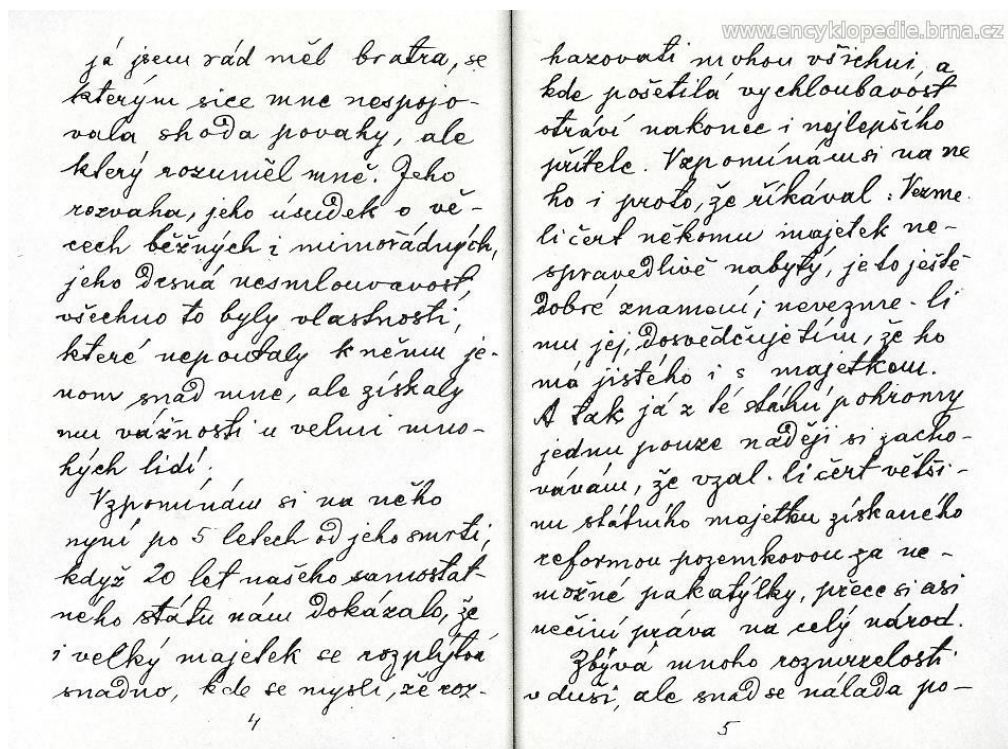 www.encyklopedie.brna.cz
já jsem rád měl bratra, se
kterým sice mne nespojo-
vala shoda povahy, ale
který rozuměl mně. Jeho
rozvaha, jeho úsudek o vě-
cech běžných i mimořádných,
jeho drsná nesmlouvavost,
všechno to byly vlastnosti,
které nepoutaly k němu je-
nom snad mne, ale získaly
mu vážnosti u velmi mno-
hých lidí.
Vzpomínám si na něho
nyní po 5 letech od jeho smrti,
když 20 let našeho samostat-
ného státu nám dokázalo, že
i velký majetek se rozplývá
snadno, kde se myslí, že roz-
4
hazovati mohou všichni, a
kde pošetilá vychloubavost
otráví nakonec i nejlepšího
přítele. Vzpomínám si na ne
ho i proto, že říkával: Vezme-
li čert někomu majetek ne-
spravedlivě nabytý, je to ještě
dobré znamení; nevezme-li
mu jej, dosvědčuje tím, že ho
má jistého i s majetkem.
A tak já z té státní pohromy
jednu pouze naději si zacho-
vávám, že vzal-li čert větši-
nu státního majetku získaného
reformou pozemkovou za ne-
možné pakatýlky, přece si asi
nečiní práva na celý národ.
Zbývá mnoho rozmrzelosti
v duši, ale snad se nálada po-
5